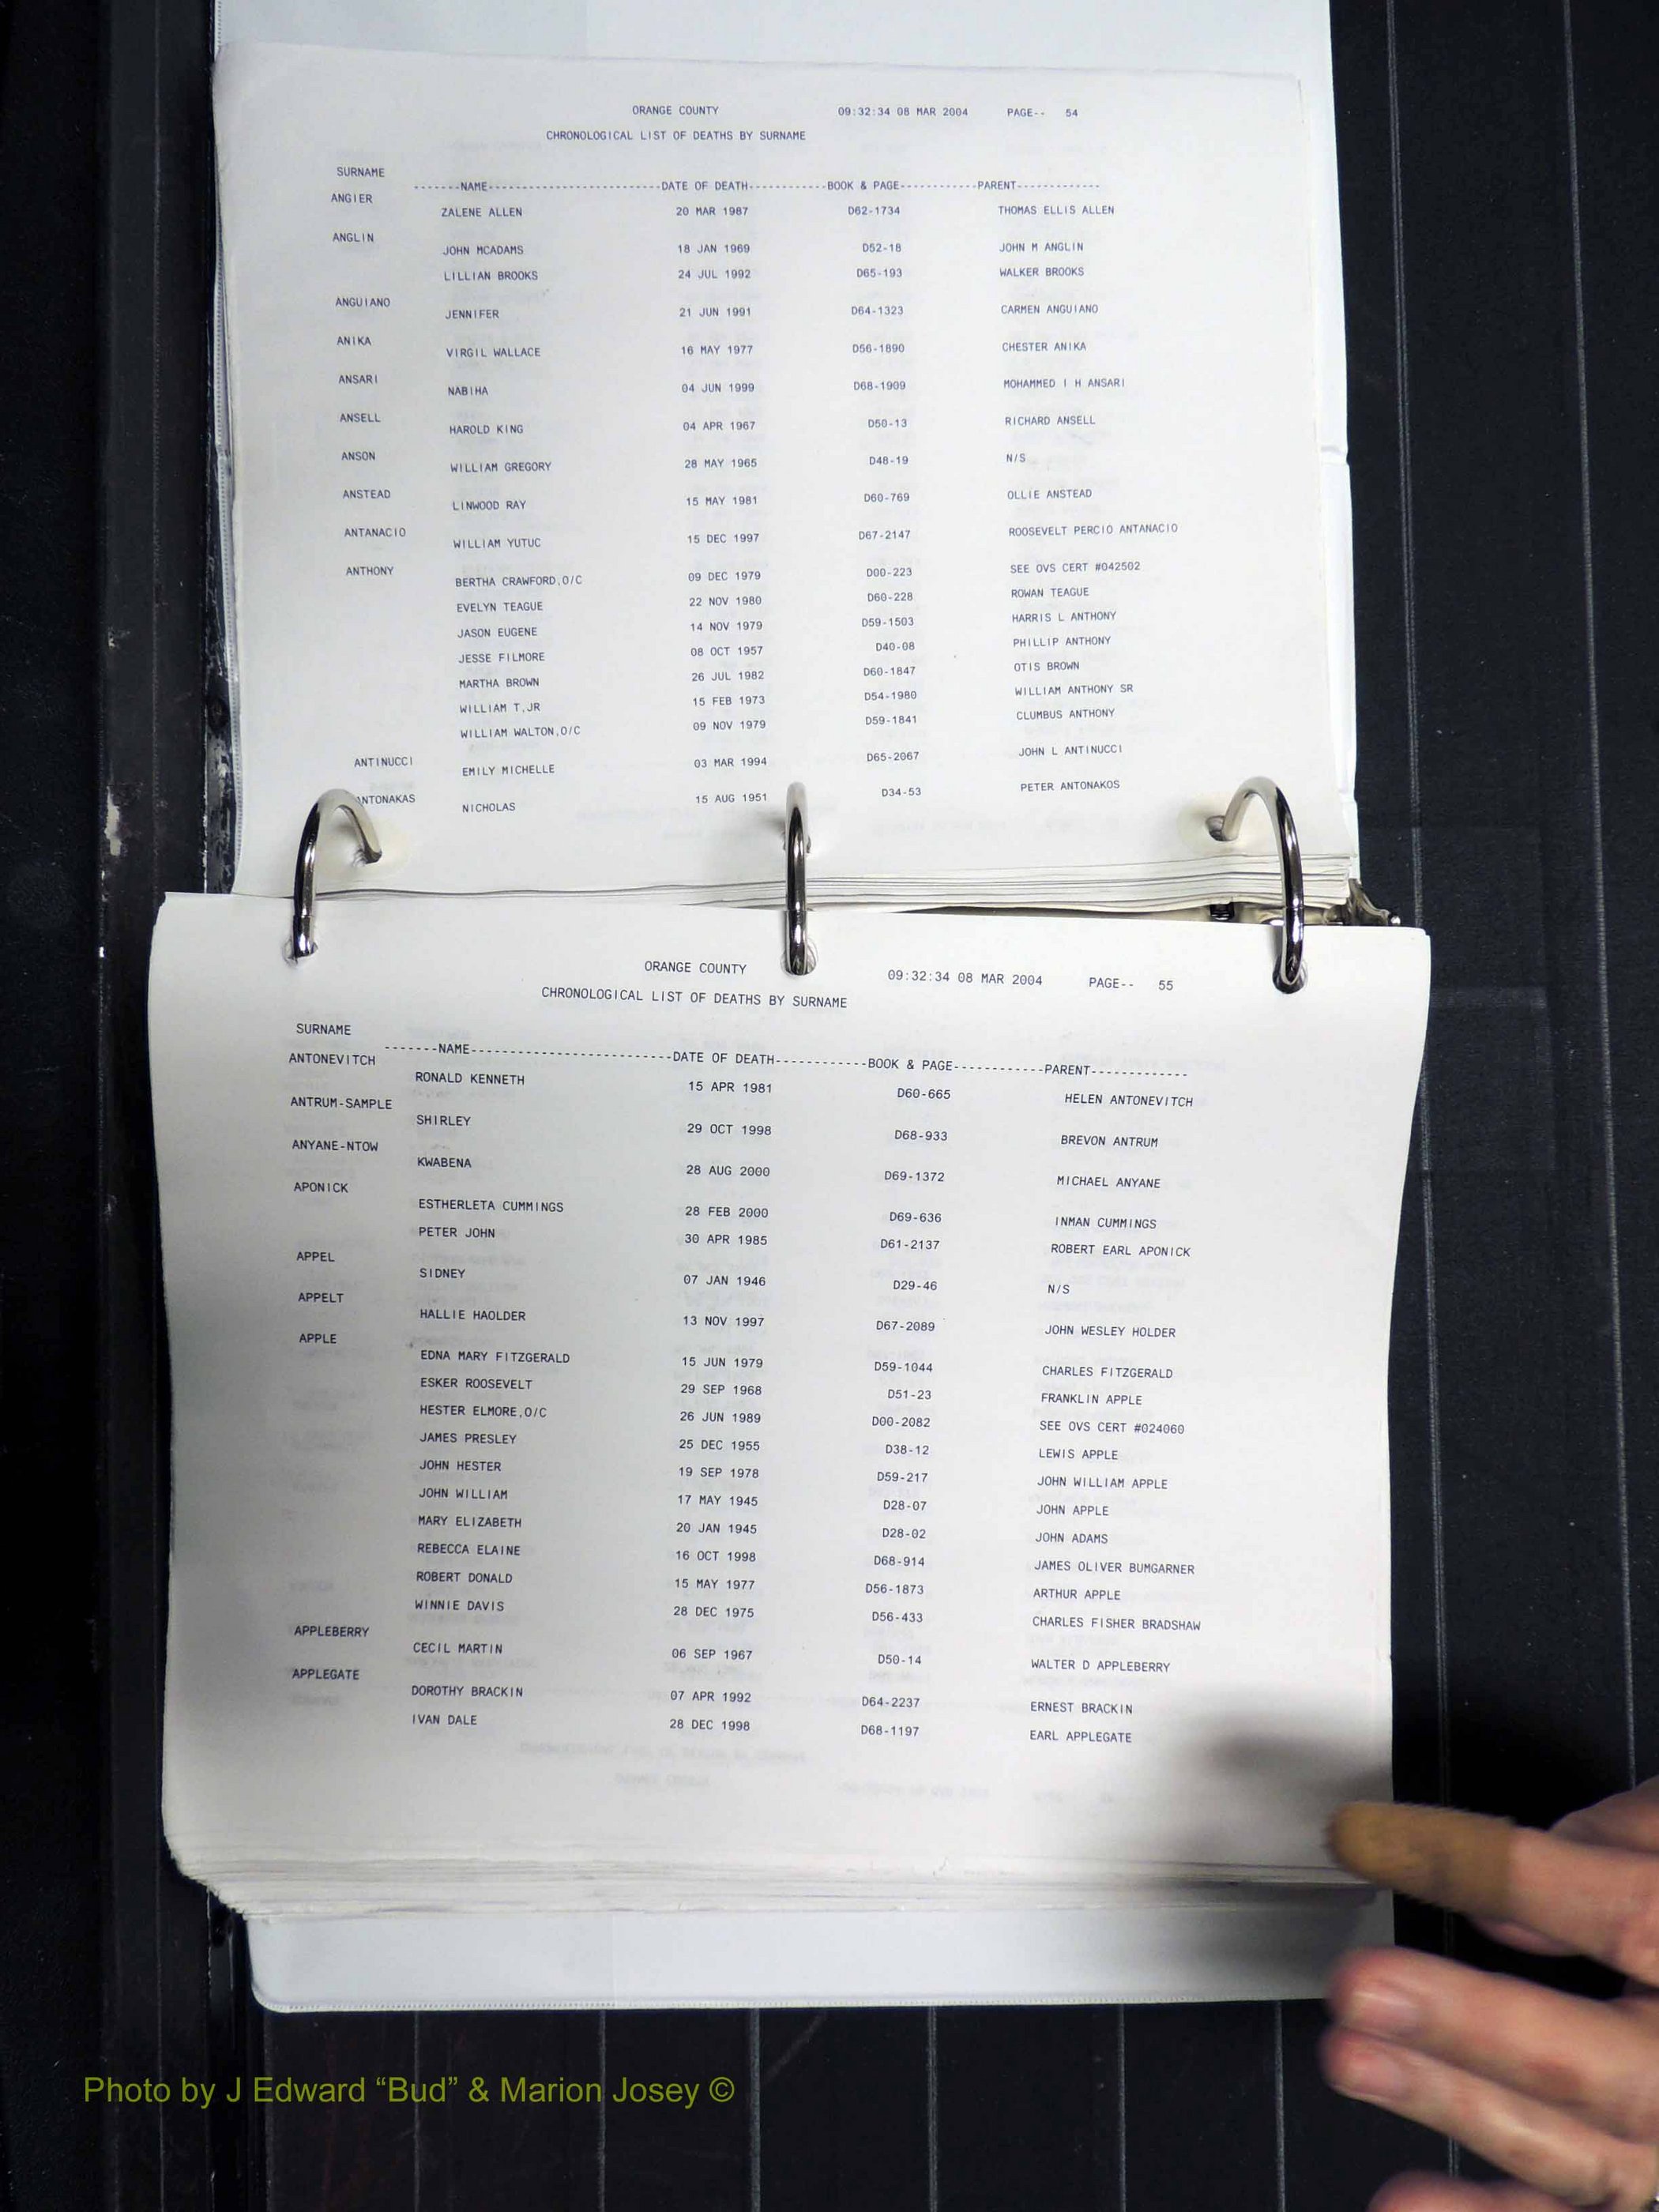 ORANGE COUNTY 09:32:34 08 MAR 2004 PAGE-- 54
CHRONOLOGICAL LIST OF DEATHS BY SURNAME
SURNAME
-------NAME-------------------------DATE OF DEATH-----------BOOK & PAGE-----------PARENT------------
ANGIER
ZALENE ALLEN 20 MAR 1987 D62-1734 THOMAS ELLIS ALLEN
ANGLIN
JOHN MCADAMS 18 JAN 1969 D52-18 JOHN M ANGLIN
LILLIAN BROOKS 24 JUL 1992 D65-193 WALKER BROOKS
ANGUIANO
JENNIFER 21 JUN 1991 D64-1323 CARMEN ANGUIANO
ANIKA
VIRGIL WALLACE 16 MAY 1977 D56-1890 CHESTER ANIKA
ANSARI
NABIHA 04 JUN 1999 D68-1909 MOHAMMED I H ANSARI
ANSELL
HAROLD KING 04 APR 1967 D50-13 RICHARD ANSELL
ANSON
WILLIAM GREGORY 28 MAY 1965 D48-19 N/S
ANSTEAD
LINWOOD RAY 15 MAY 1981 D60-769 OLLIE ANSTEAD
ANTANACIO
WILLIAM YUTUC 15 DEC 1997 D67-2147 ROOSEVELT PERCIO ANTANACIO
ANTHONY
BERTHA CRAWFORD,O/C 09 DEC 1979 D00-223 SEE OVS CERT #042502
EVELYN TEAGUE 22 NOV 1980 D60-228 ROWAN TEAGUE
JASON EUGENE 14 NOV 1979 D59-1503 HARRIS L ANTHONY
JESSE FILMORE 08 OCT 1957 D40-08 PHILLIP ANTHONY
MARTHA BROWN 26 JUL 1982 D60-1847 OTIS BROWN
WILLIAM T,JR 15 FEB 1973 D54-1980 WILLIAM ANTHONY SR
WILLIAM WALTON,O/C 09 NOV 1979 D59-1841 CLUMBUS ANTHONY
ANTINUCCI
EMILY MICHELLE 03 MAR 1994 D65-2067 JOHN L ANTINUCCI
ANTONAKAS
NICHOLAS 15 AUG 1951 D34-53 PETER ANTONAKOS
ORANGE COUNTY 09:32:34 08 MAR 2004 PAGE-- 55
CHRONOLOGICAL LIST OF DEATHS BY SURNAME
SURNAME
-------NAME-------------------------DATE OF DEATH-----------BOOK & PAGE-----------PARENT------------
ANTONEVITCH
RONALD KENNETH 15 APR 1981 D60-665 HELEN ANTONEVITCH
ANTRUM-SAMPLE
SHIRLEY 29 OCT 1998 D68-933 BREVON ANTRUM
ANYANE-NTOW
KWABENA 28 AUG 2000 D69-1372 MICHAEL ANYANE
APONICK
ESTHERLETA CUMMINGS 28 FEB 2000 D69-636 INMAN CUMMINGS
PETER JOHN 30 APR 1985 D61-2137 ROBERT EARL APONICK
APPEL
SIDNEY 07 JAN 1946 D29-46 N/S
APPELT
HALLIE HAOLDER 13 NOV 1997 D67-2089 JOHN WESLEY HOLDER
APPLE
EDNA MARY FITZGERALD 15 JUN 1979 D59-1044 CHARLES FITZGERALD
ESKER ROOSEVELT 29 SEP 1968 D51-23 FRANKLIN APPLE
HESTER ELMORE,O/C 26 JUN 1989 D00-2082 SEE OVS CERT #024060
JAMES PRESLEY 25 DEC 1955 D38-12 LEWIS APPLE
JOHN HESTER 19 SEP 1978 D59-217 JOHN WILLIAM APPLE
JOHN WILLIAM 17 MAY 1945 D28-07 JOHN APPLE
MARY ELIZABETH 20 JAN 1945 D28-02 JOHN ADAMS
REBECCA ELAINE 16 OCT 1998 D68-914 JAMES OLIVER BUMGARNER
ROBERT DONALD 15 MAY 1977 D56-1873 ARTHUR APPLE
WINNIE DAVIS 28 DEC 1975 D56-433 CHARLES FISHER BRADSHAW
APPLEBERRY
CECIL MARTIN 06 SEP 1967 D50-14 WALTER D APPLEBERRY
APPLEGATE
DOROTHY BRACKIN 07 APR 1992 D64-2237 ERNEST BRACKIN
IVAN DALE 28 DEC 1998 D68-1197 EARL APPLEGATE
Photo by J Edward “Bud” & Marion Josey ©